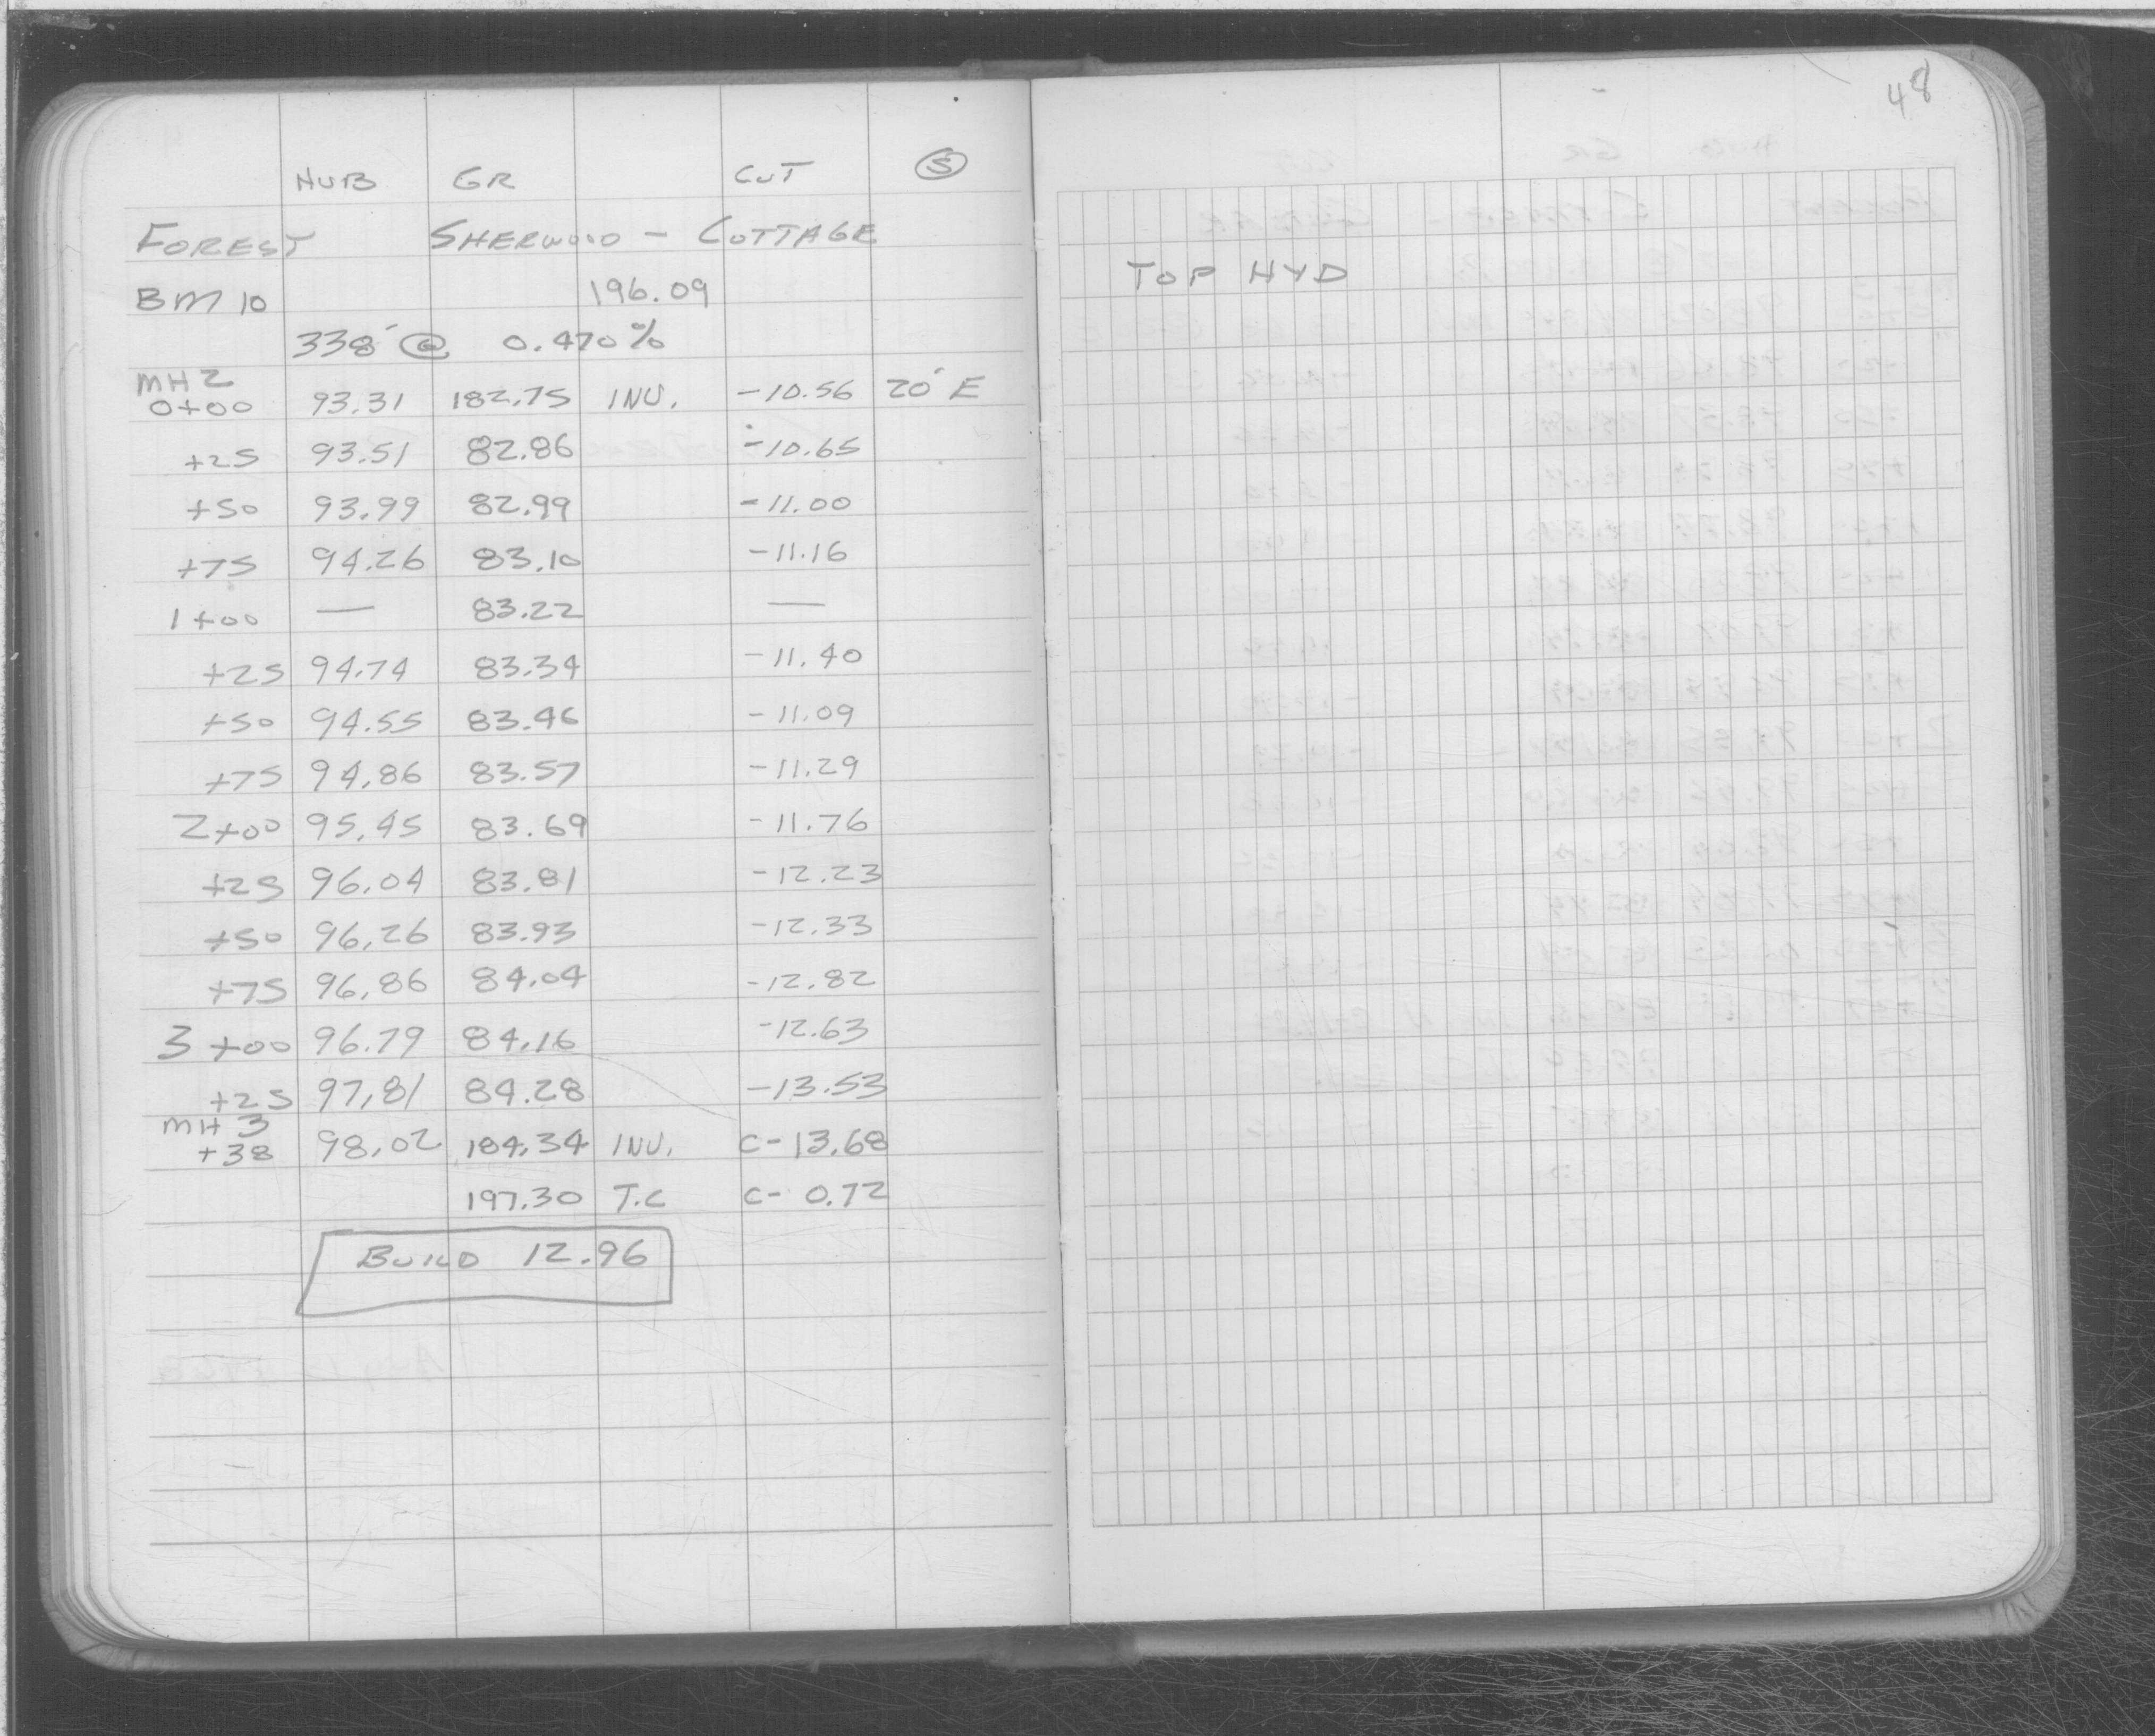 48
HUB GR CUT S
FOREST SHERWOOD - COTTAGE
BM 10 196.09
TOP HYD
338' @ 0.470%
MH 2
0+00 93.31 182.75 INV. -10.56 20' E
+25 93.51 82.86 -10.65
+50 93.99 82.99 -11.00
+75 94.26 83.10 -11.16
1+00 — 83.22 —
+25 94.74 83.34 -11.40
+50 94.55 83.46 -11.09
+75 94.86 83.57 -11.29
2+00 95.45 83.69 -11.76
+25 96.04 83.81 -12.23
+50 96.26 83.93 -12.33
+75 96.86 84.04 -12.82
3+00 96.79 84.16 -12.63
+25 97.81 84.28 -13.53
MH 3
+38 98.02 184.34 INV. C-13.68
197.30 T.C C-0.72
BUILD 12.96